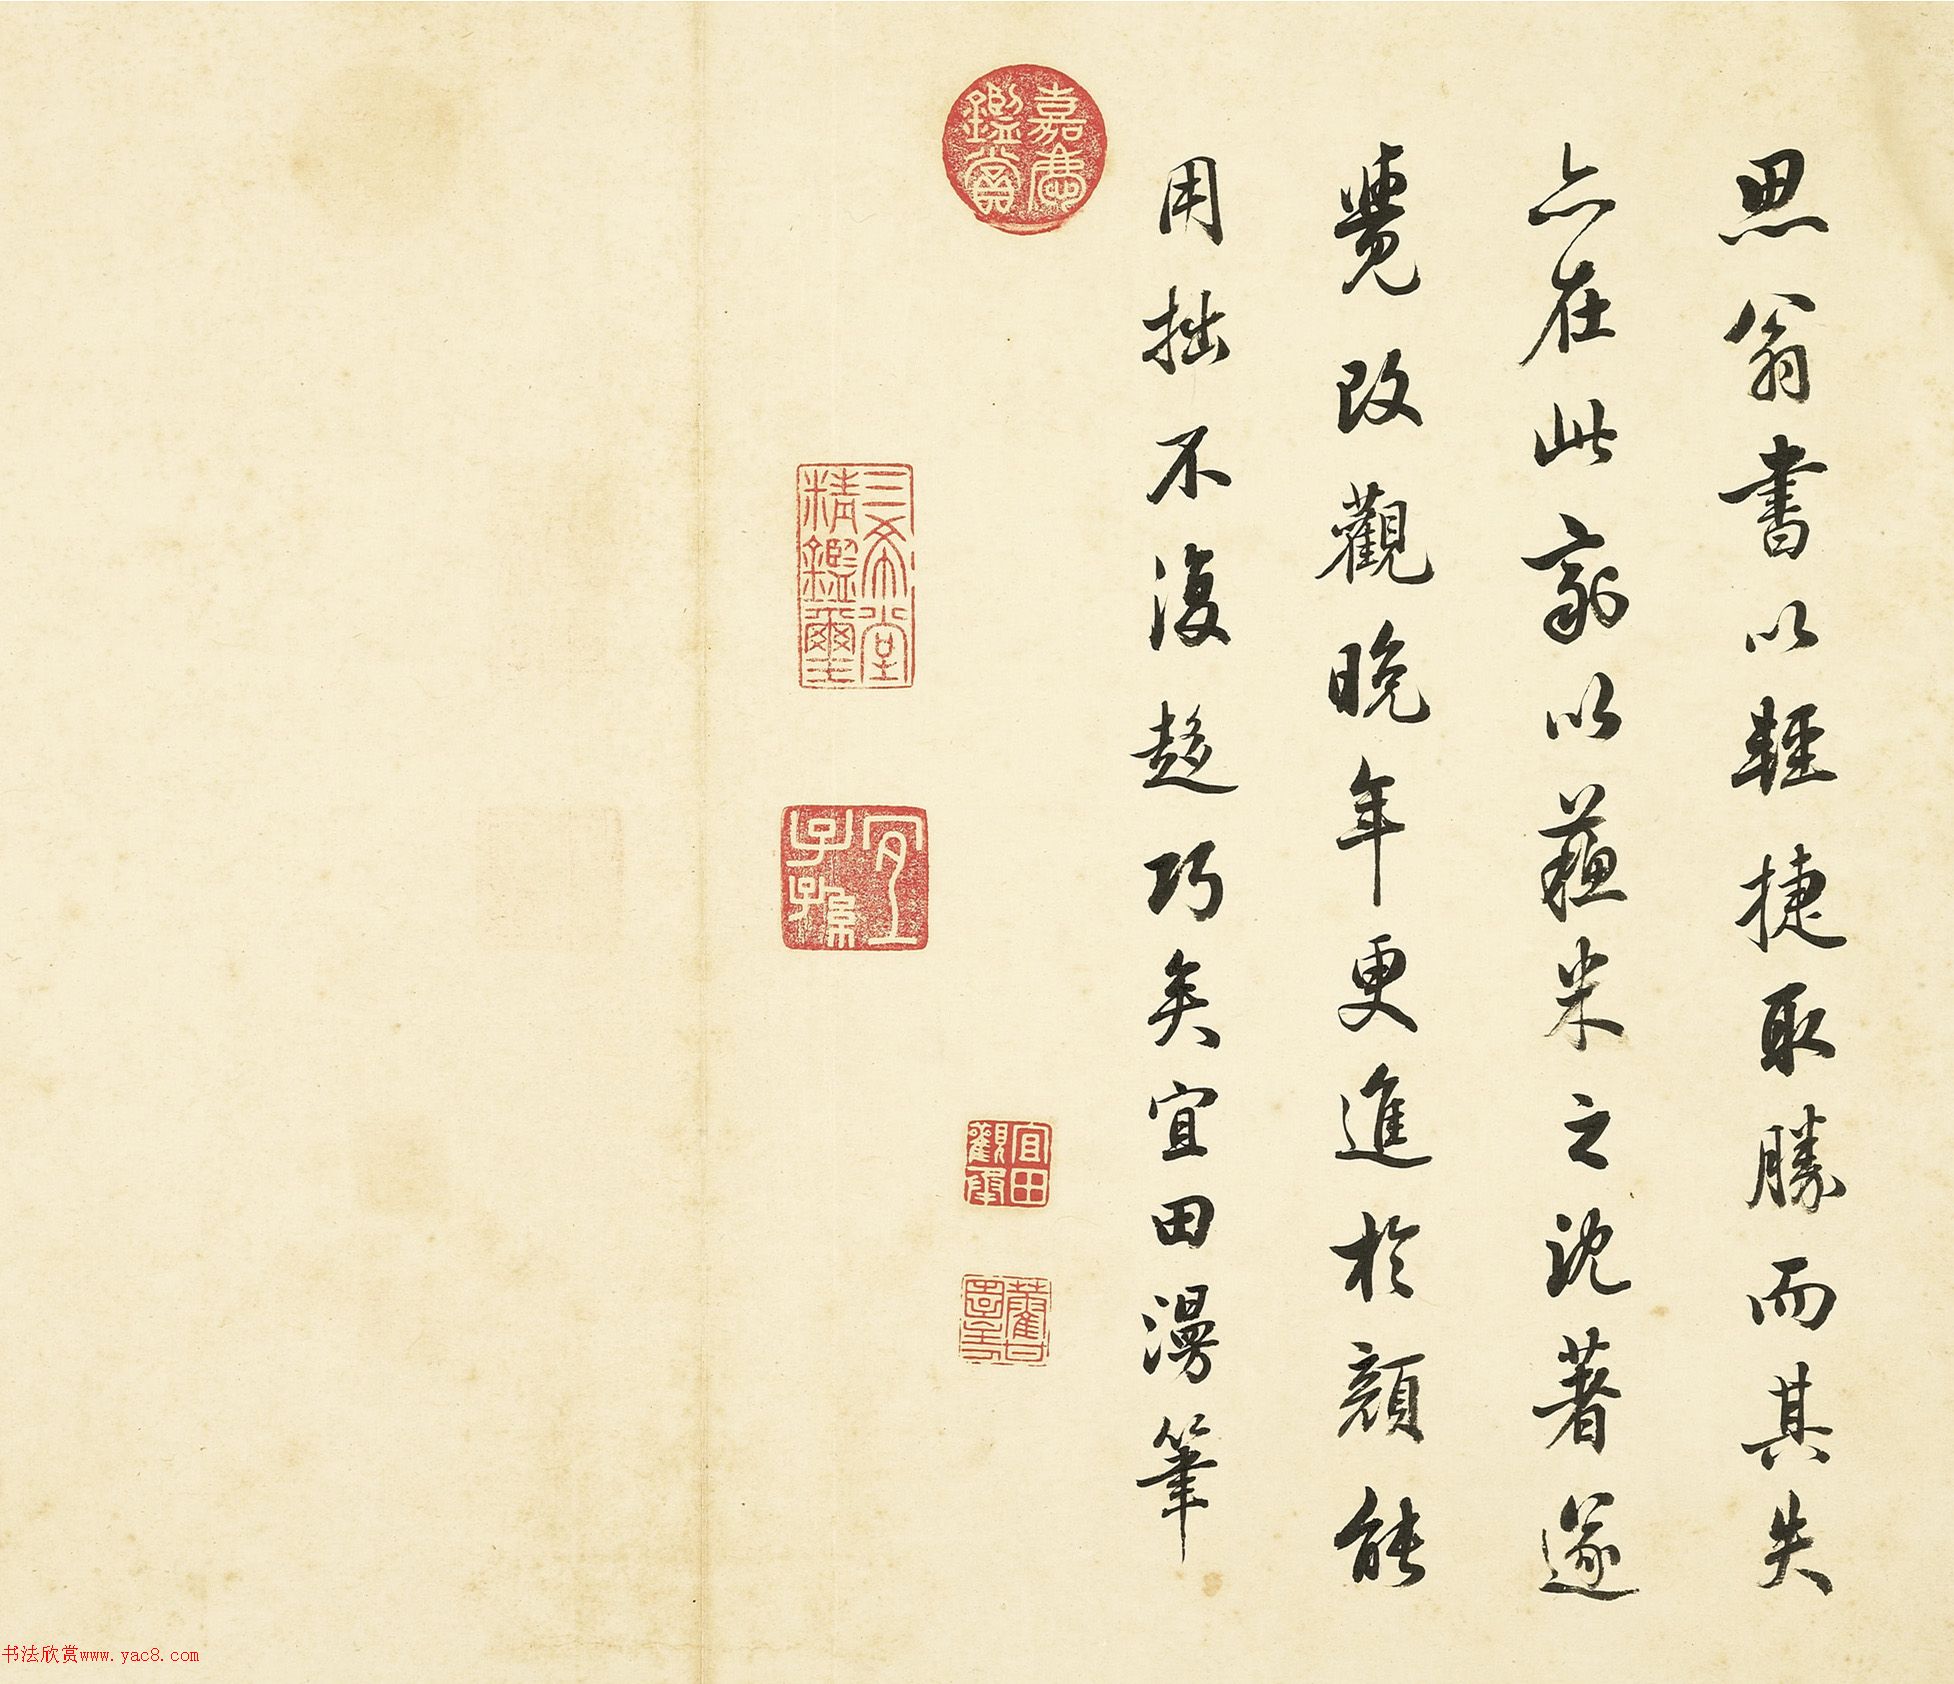 思翁書以輕捷取勝而其失
亦在此敦以蘇米之沈著遂
覺改觀晚年更進於顏能
用拙不復趍巧矣宜田漫筆
嘉慶鑑賞
三希堂精鑑璽
宜子孫
宜田
书法欣赏www.yac8.com